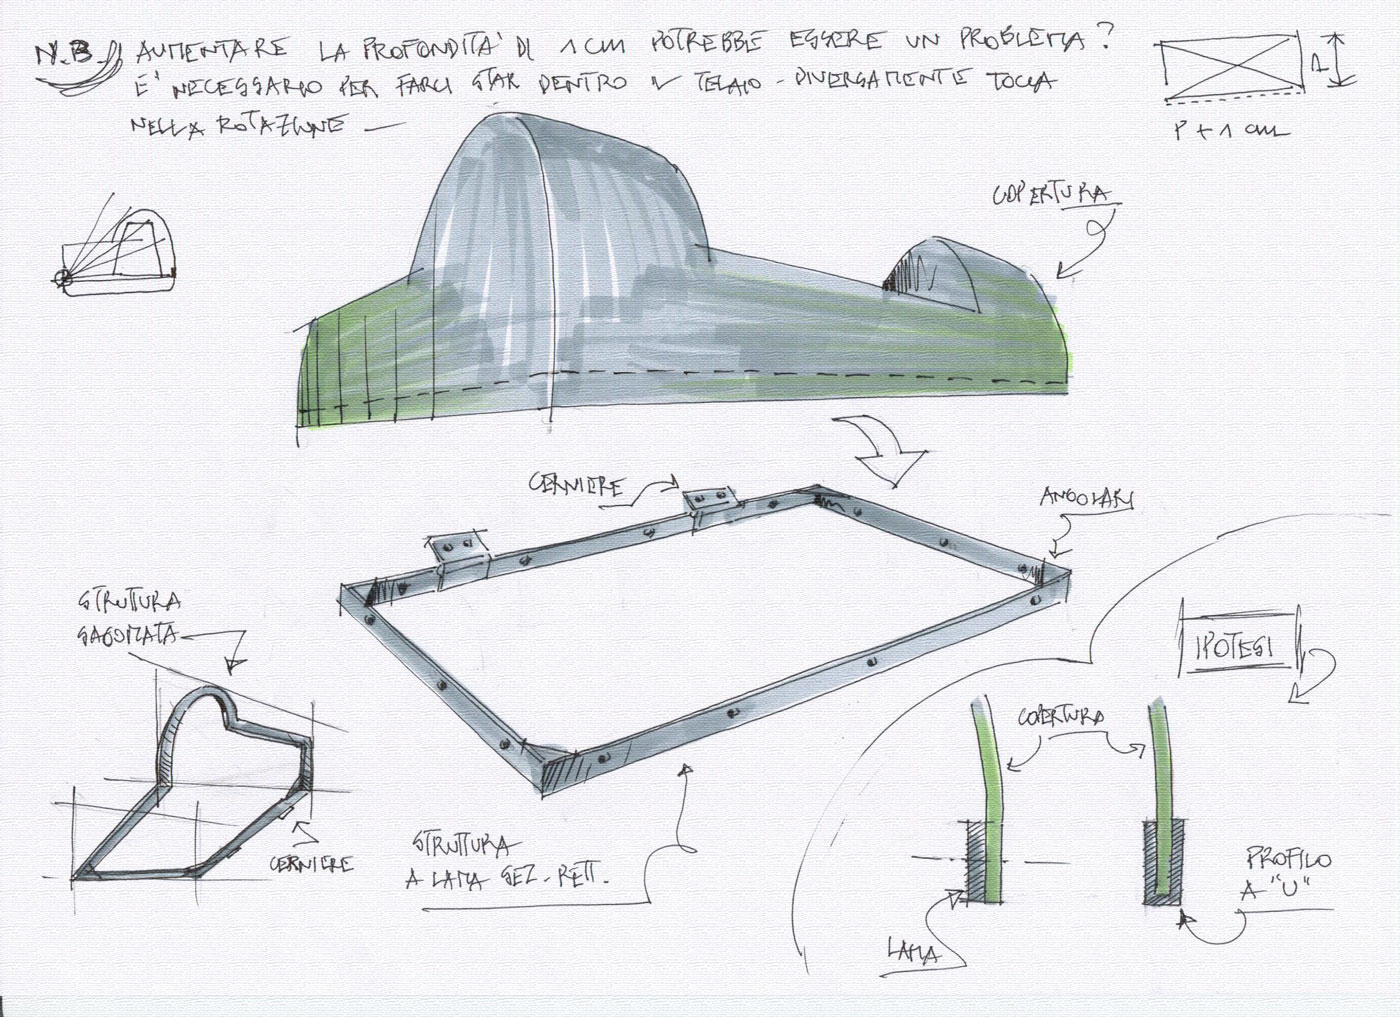 N.B. AUMENTARE LA PROFONDITA' DI 1 CM POTREBBE ESSERE UN PROBLEMA?
E' NECESSARIO PER FARCI STAR DENTRO IL TELAIO - DIVERSAMENTE TOCCA
NELLA ROTAZIONE —
P
P + 1 CM
COPERTURA
CERNIERE
ANGOLARI
STRUTTURA
SAGOMATA
IPOTESI
COPERTURA
CERNIERE
STRUTTURA
A LAMA SEZ. RETT.
PROFILO
A "U"
LAMA